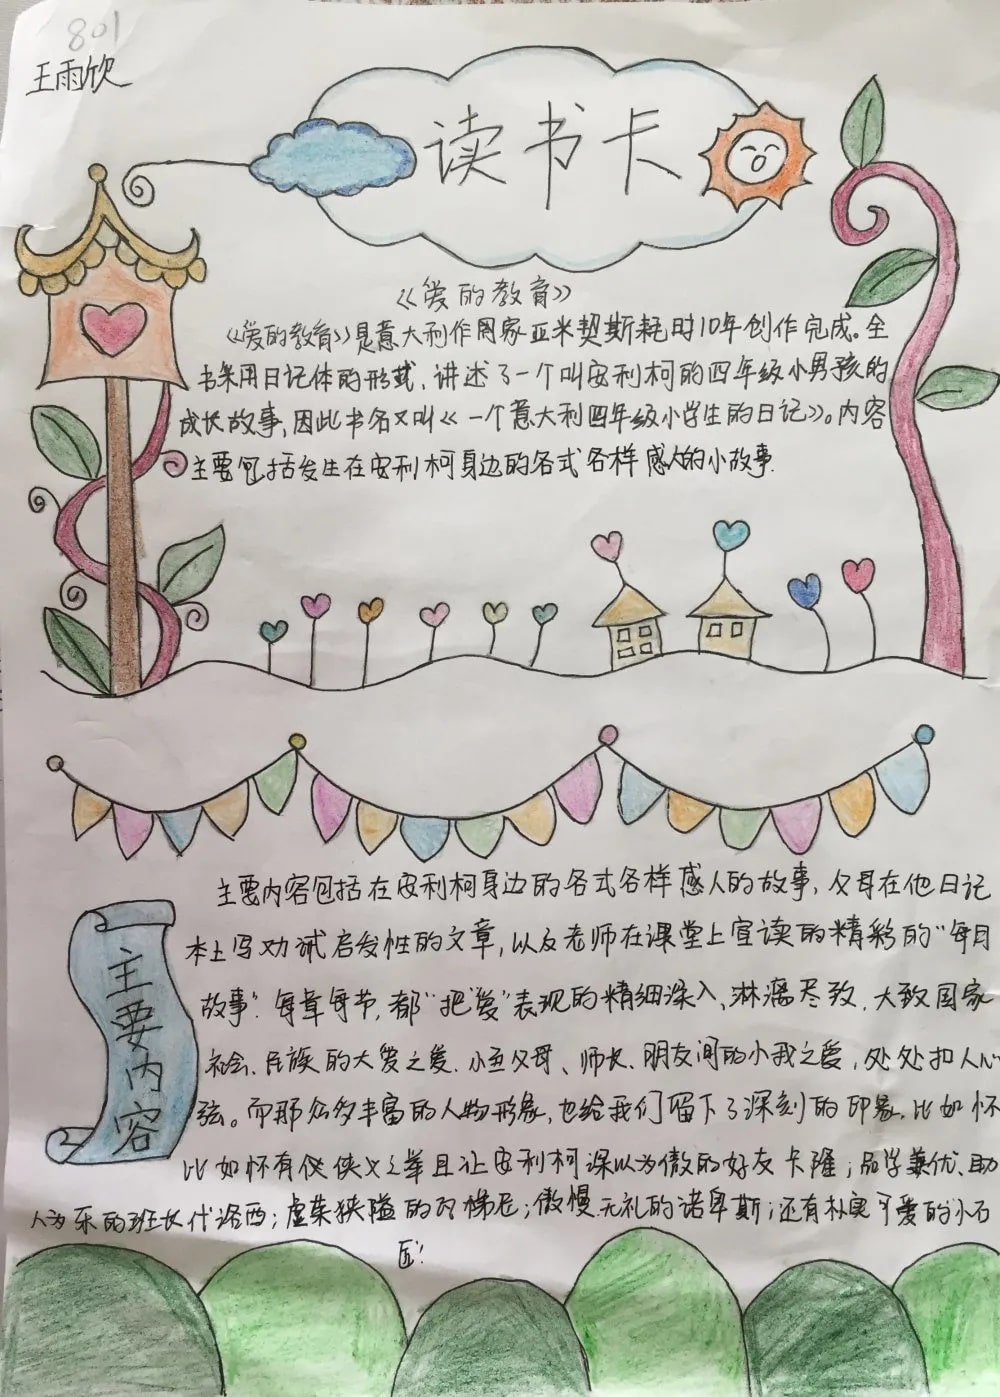 801
王雨欣
读书卡
《爱的教育》
《爱的教育》是意大利作国家亚米契斯耗时10年创作完成。全
书采用日记体的形式，讲述了一个叫安利柯的四年级小男孩的
成长故事，因此书名又叫《一个意大利四年级小学生的日记》。内容
主要包括发生在安利柯身边的各式各样感人的小故事.
主要内容
主要内容包括在安利柯身边的各式各样感人的故事，父母在他日记
本上写劝诫启发性的文章，以及老师在课堂上宣读的精彩的"每月
故事". 每章每节，都"把"爱"表现的精细深入、淋漓尽致，大致国家
社会、民族的大爱之爱，小至父母、师长、朋友间的小我之爱，处处扣人心
弦。而那众多丰富的人物形象，也给我们留下了深刻的印象，比如怀
比如怀有侠义之举且让安利柯深以为傲的好友卡隆；品学兼优、助
人为乐的班长代洛西；虚荣狭隘的瓦梯尼；傲慢无礼的诺卑斯；还有朴实可爱的小石
匠！